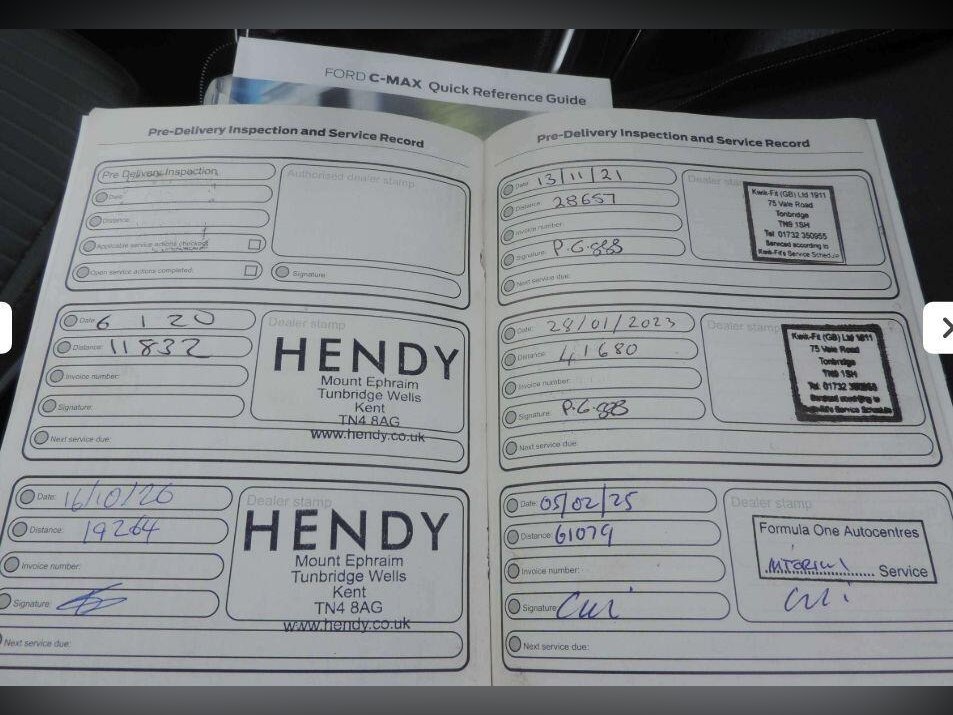 FORD C-MAX Quick Reference Guide
Pre-Delivery Inspection and Service Record
Pre Delivery Inspection
Date:
Distance:
Applicable service actions checked:
Open service actions completed:
Authorised dealer stamp
Signature:
Date: 6 1 20
Distance: 11832
Invoice number:
Signature:
Next service due:
Dealer stamp
HENDY
Mount Ephraim
Tunbridge Wells
Kent
TN4 8AG
www.hendy.co.uk
Date: 16/10/20
Distance: 19264
Invoice number:
Signature:
Next service due:
Dealer stamp
HENDY
Mount Ephraim
Tunbridge Wells
Kent
TN4 8AG
www.hendy.co.uk
Pre-Delivery Inspection and Service Record
Date: 13/11/21
Distance: 28657
Invoice number:
Signature:
Next service due:
Dealer stamp
Kwik-Fit (GB) Ltd 1911
75 Vale Road
Tonbridge
TN9 1SH
Tel 01732 350955
Serviced according to
Kwik-Fit's Service Schedule
Date: 28/01/2023
Distance: 41680
Invoice number:
Signature:
Next service due:
Dealer stamp
Kwik-Fit (GB) Ltd 1911
75 Vale Road
Tonbridge
TN9 1SH
Tel 01732 350955
Serviced according to
Kwik-Fit's Service Schedule
Date: 05/02/25
Distance: 61079
Invoice number:
Signature:
Next service due:
Dealer stamp
Formula One Autocentres
Service